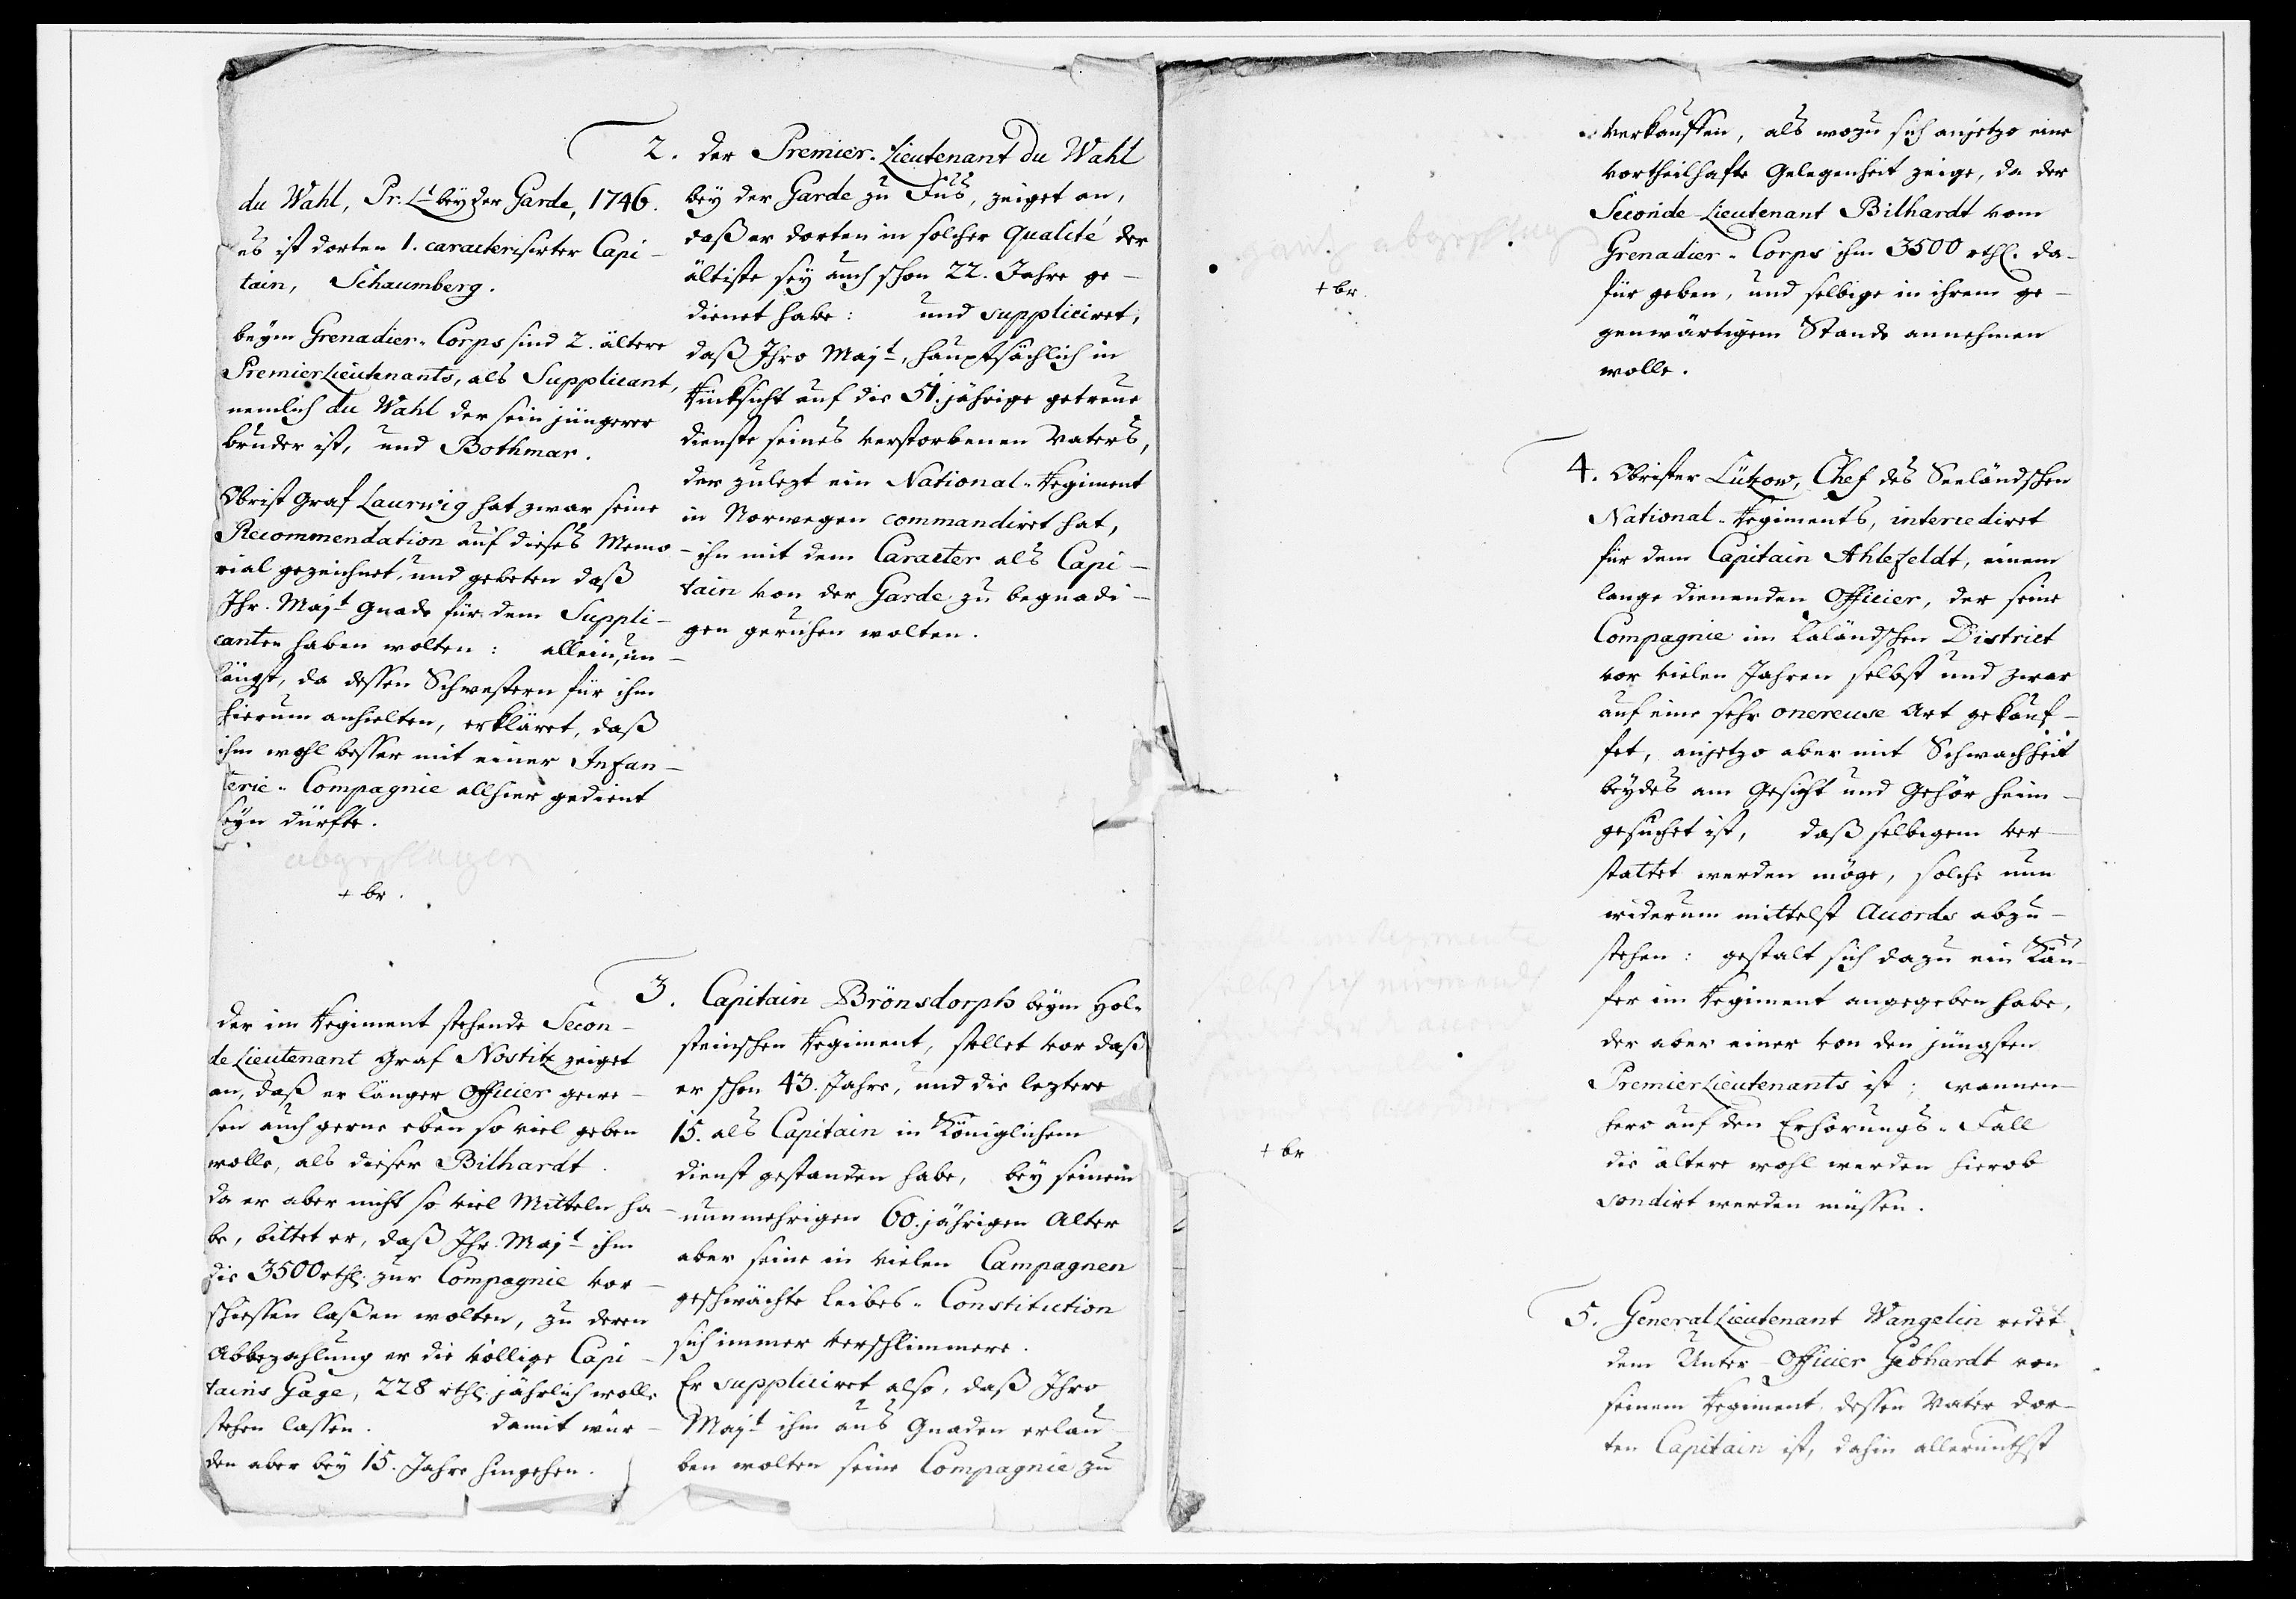 2. der Premier-Lieutenant du Wahl
bey der Garde zu Fuß, zeiget an,
daß er dorten in solcher Qualité der
ältiste sey auch schon 22. Jahre ge-
dienet habe: und suppliciret,
daß Ihro Majt, hauptsächlich in
Rücksicht auf die 51.jährige getreue
dienste seines verstorbenen Vaters,
der zulezt ein National-Regiment
in Norwegen commandiret hat,
ihn mit dem Caracter als Capi-
tain von der Garde zu begnadi-
gen geruhen wolten.
du Wahl, Pr. Lt bey der Garde, 1746.
es ist dorten 1. caracterisirter Capi-
tain, Schaumberg.
beym Grenadier-Corps sind 2. ältere
PremierLieutenants, als Supplicant,
nemlich du Wahl der sein jüngerer
bruder ist, und Bothmar.
Obrist Graf Laurwig hat zwar seine
Recommendation auf dieses Memo-
rial gezeichnet, und gebeten daß
Ihr. Majt Gnade für dem Suppli-
canten haben wolten: allein, un-
längst, da dessen Schwestern für ihm
hierum anhielten, erkläret, daß
ihm wohl besser mit einer Infan-
terie-Compagnie allhier gedient
seyn dürfte.
abgeschlagen
+ br.
3. Capitain Brönsdorph beym Hol-
steinschen Regiment, stellet vor daß
er schon 43. Jahre, und die leztere
15. als Capitain in Königlichem
dienst gestanden habe, bey seinem
nunmehrigen 60.jährigen Alter
aber seine in vielen Campagnen
geschwächte Leibes-Constitution
sich immer verschlimmere.
Er suppliciret also, daß Ihro
Majt ihm aus Gnaden erlau-
ben wolten seine Compagnie zu
der im Regiment stehende Secon-
de Lieutenant Graf Nostitz zeiget
an, daß er länger Officier gewe-
sen auch gerne eben so viel geben
wolle, als dieser Bilhardt.
da er aber nicht so viel Mitteln ha-
be, bittet er, daß Ihr. Majt ihm
die 3500 rthl. zur Compagnie vor-
schiessen laßen wolten, zu deren
Abbezahlung er die völlige Capi-
tains Gage, 228 rthl. jährlich wolle
stehen lassen. damit wür-
den aber bey 15. Jahre hingehen.
verkauffen, als wozu sich anjetzo eine
vortheilhafte Gelegenheit zeige, da der
Seconde-Lieutenant Bilhardt vom
Grenadier-Corps ihm 3500 rthl. da-
für geben, und selbige in ihrem ge-
genwärtigem Stande annehmen
wolle.
gantz abgeschlagen
+ br.
4. Obrister Lützow, Chef des Seeländschen
National-Regiments, intercediret
für dem Capitain Ahlefeldt, einem
lange dienenden Officier, der seine
Compagnie im Laländschen District
vor vielen Jahren selbst und zwar
auf eine sehr onereuse Art gekauf-
fet, anjetzo aber mit Schwachheit
beydes am Gesicht und Gehör heim-
gesuchet ist, daß selbigem ver-
stattet werden möge, solche nun
widerum mittelst Accords abzu-
stehen: gestalt sich dazu ein Käu-
fer im Regiment angegeben habe,
der aber einer von den jüngsten
PremierLieutenants ist; wannen-
hero auf den Erhörungs-Fall
die ältere wohl werden hierob
sondirt werden müssen.
+ br
5. GeneralLieutenant Wangelin redet
dem Unter-Officier Gebhardt von
seinem Regiment, dessen Vater dor-
ten Capitain ist, dahin allerunthst